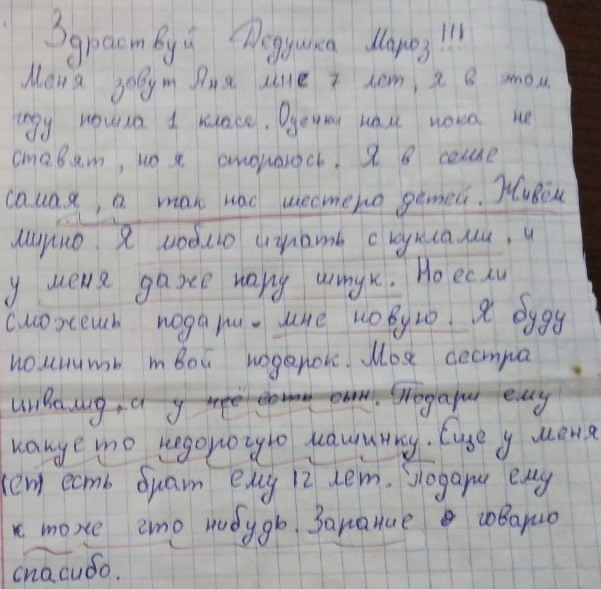 Здраствуй Дедушка Мароз!!!
Меня зовут Яня мне 7 лет, я в этом
году пошла 1 класс. Оценки нам пока не
ставят, но я стораюсь. Я в семье
самая, а так нас шестеро детей. Живём
мирно. Я люблю играть с куклами, и
у меня даже пару штук. Но если
сможешь подари мне новую. Я буду
помнить твой подарок. Моя сестра
инвалид, и у неё есть сын. Подари ему
какуе то недорогую машинку. Еще у меня
есть брат ему 12 лет. Подари ему
тоже что нибудь. Зарание говарю
спасибо.